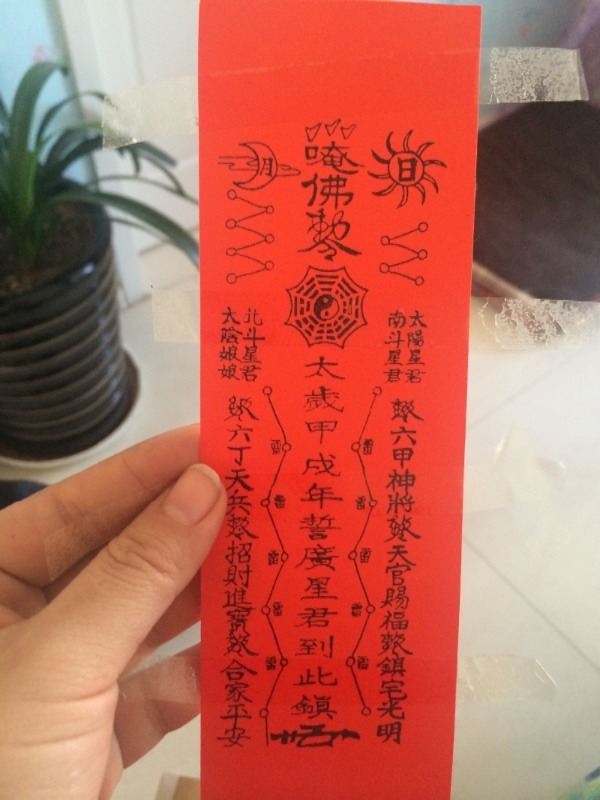 日
太陽星君
南斗星君
勅六甲神將勅天官賜福勅鎮宅光明
唵佛勅令
太歲甲戌年誓廣星君到此鎮
月
北斗星君
太陰娘娘
勅六丁天兵勅招財進寶勅合家平安